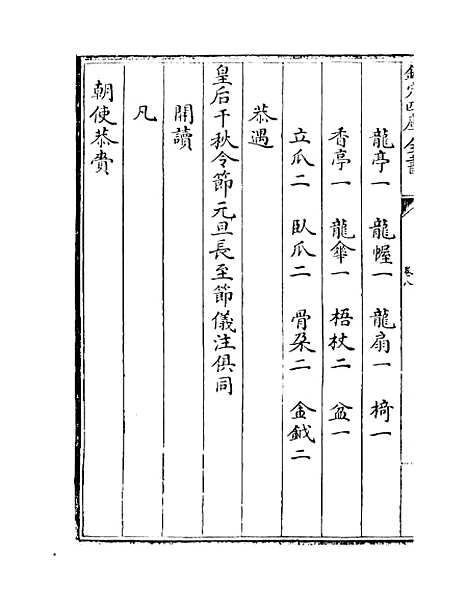 欽定四庫全書
卷八
龍亭一 龍幄一 龍扇一 椅一
香亭一 龍傘一 梧杖二 盆一
立瓜二 臥瓜二 骨朶二 金鉞二
恭遇
皇后千秋令節元旦長至節儀注俱同
開讀
凡
朝使恭賫